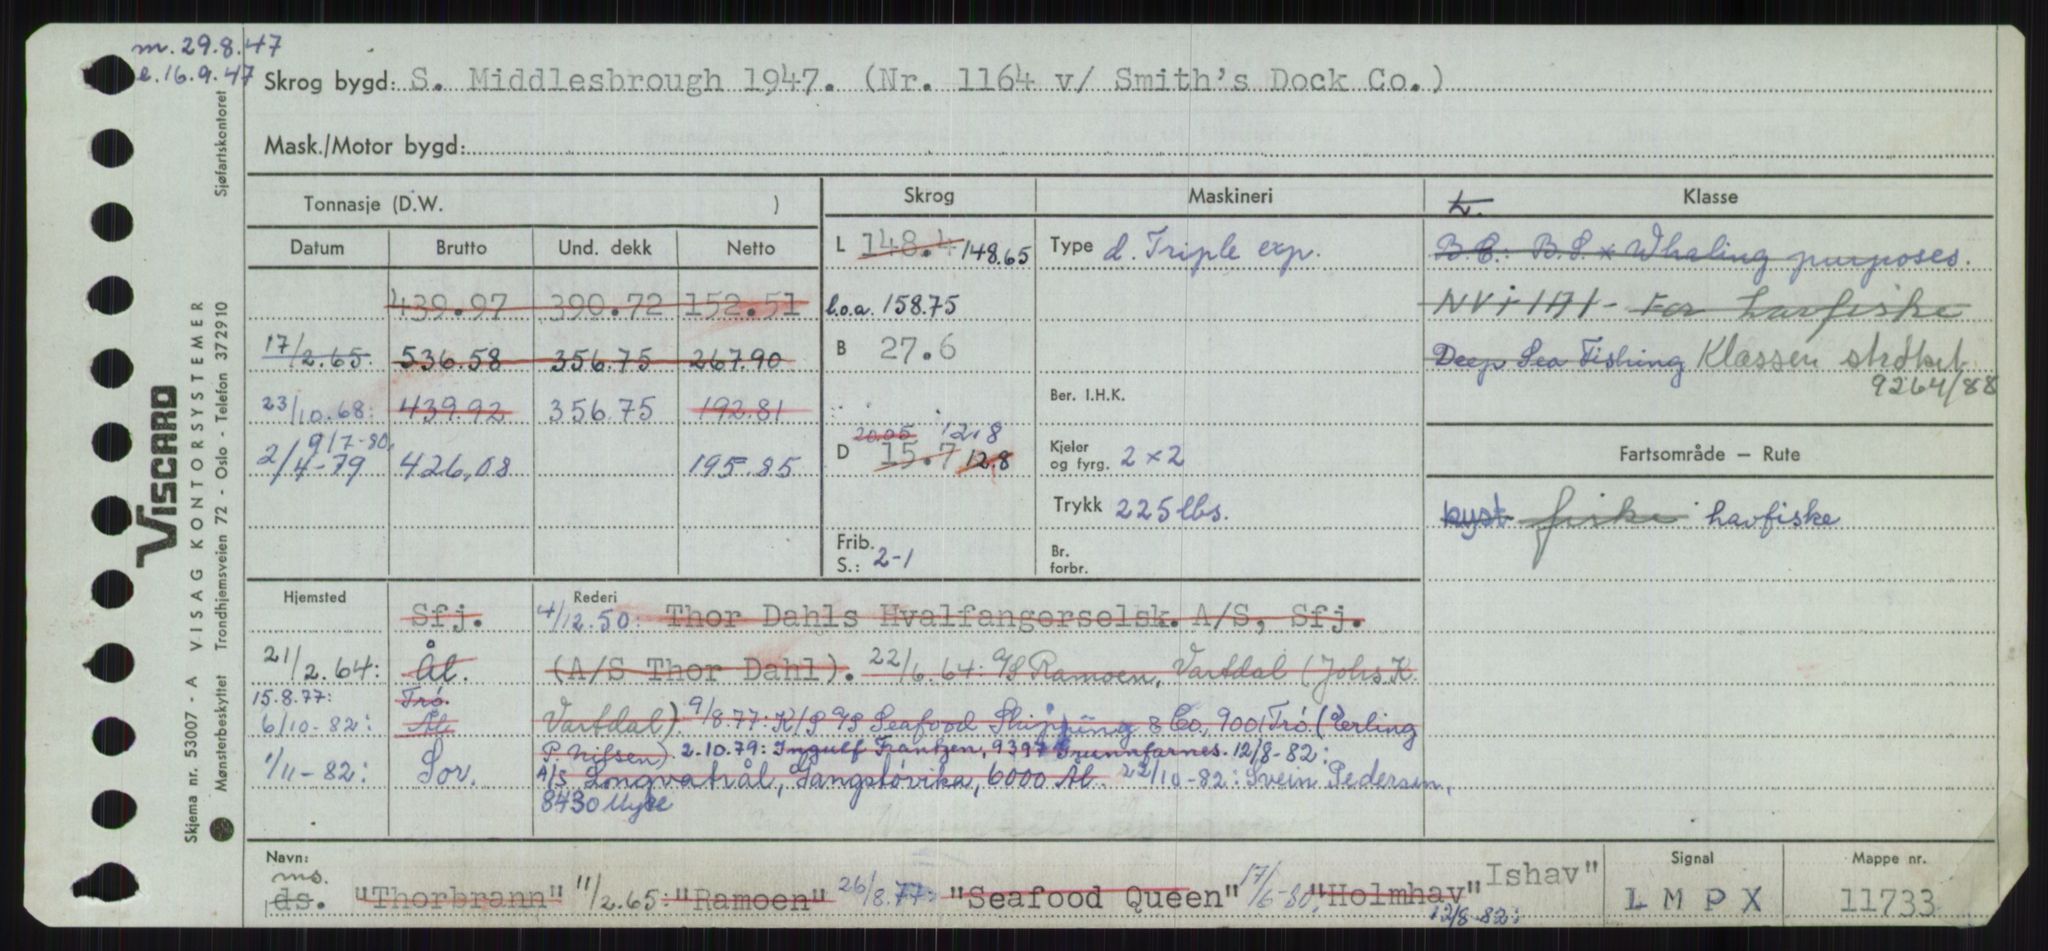 m. 29.8.47
e. 16.9.47
Skrog bygd: S. Middlesbrough 1947. (Nr. 1164 v/ Smith's Dock Co.)
Mask./Motor bygd:
Tonnasje (D.W. )
Datum Brutto Und. dekk Netto
439.97 390.72 152.51
17/2.65. 536.58 356.75 267.90
23/10.68: 439.92 356.75 192.81
9/7-80,
2/4-79 426,08 195.85
Skrog
L 148.4 148.65
l.o.a. 158.75
B 27.6
20.05 12,8
D 15.7 12.8
Frib.
S.: 2-1
Maskineri
Type d. Triple exp.
Ber. I.H.K.
Kjeler
og fyrg. 2 x 2
Trykk 225 lbs.
Br.
forbr.
Klasse
B.S. x Whaling purposes.
For havfiske
Deep Sea Fishing Klassen strøket
9264/88
Fartsområde – Rute
kyst fiske havfiske
Hjemsted
Sfj.
21/2.64: Ål.
15.8.77: Trø.
6/10-82: Ål
1/11-82: Sor.
Rederi
4/12.50: Thor Dahls Hvalfangerselsk. A/S, Sfj.
(A/S Thor Dahl). 22/6.64: P/R Ramoen, Vartdal (Johs. K.
Vartdal) 9/8.77: K/S A/S Seafood Shipping & Co, 9001 Trø (Erling
P. Nilsen) 2.10.79: Ingulf Frantzen, 9397 Grunnfarnes. 12/8-82:
A/S Longvatrål, Gangstøvika, 6000 Ål. 22/10-82: Svein Pedersen,
8430 Myre
Navn:
ms.
ds. "Thorbrann" 11/2.65: "Ramoen" 26/8.77: "Seafood Queen" 17/6-80: "Holmhav" Ishav"
12/8-82:
Signal
L M P X
Mappe nr.
11733
Sjøfartskontoret
VISCARD
Skjema nr. 53007 - A VISAG KONTORSYSTEMER
Mønsterbeskyttet Trondhjemsveien 72 - Oslo - Telefon 372910